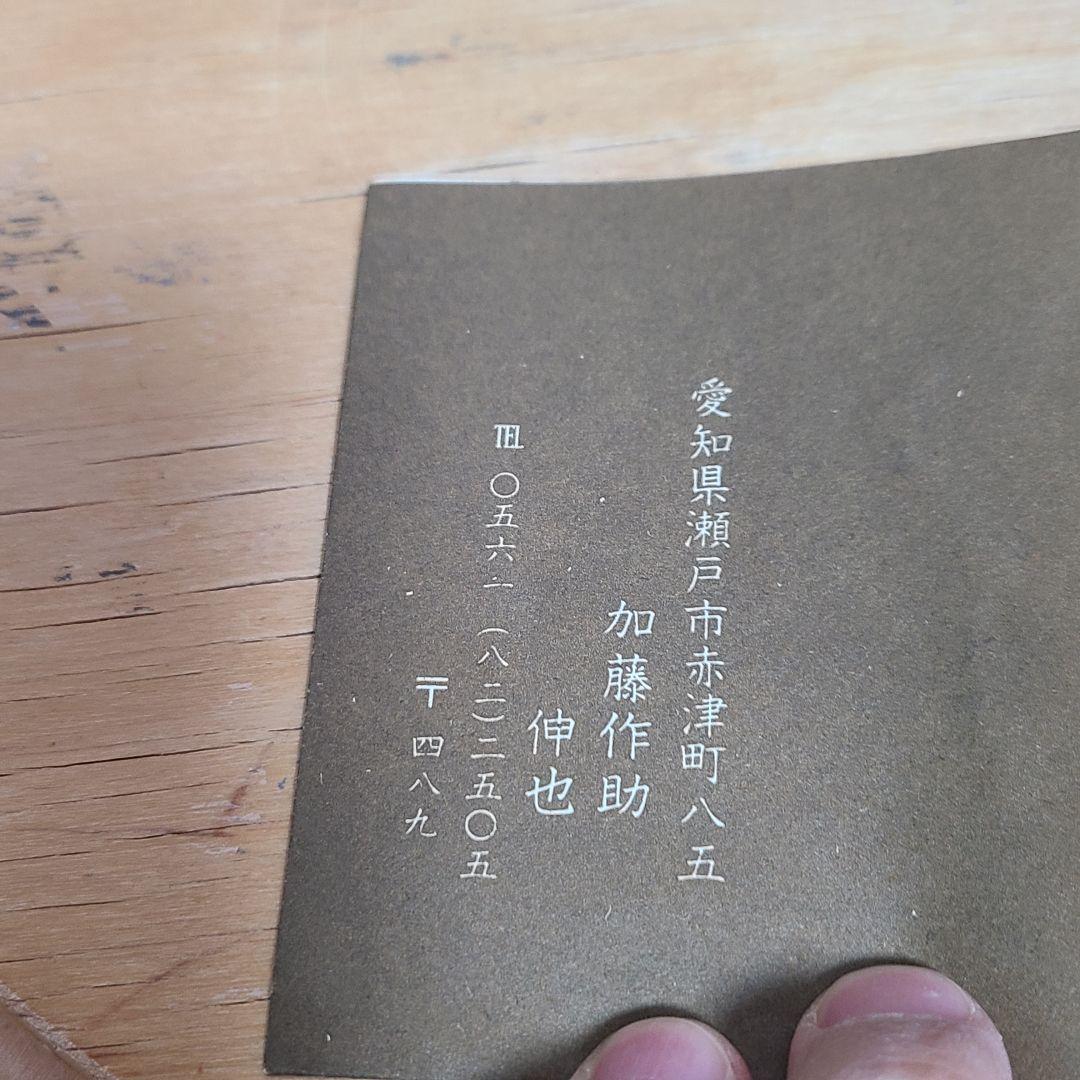 愛知県瀬戸市赤津町八五
加藤作助
伸也
TEL 〇五六一(八二)二五〇五
〒四八九